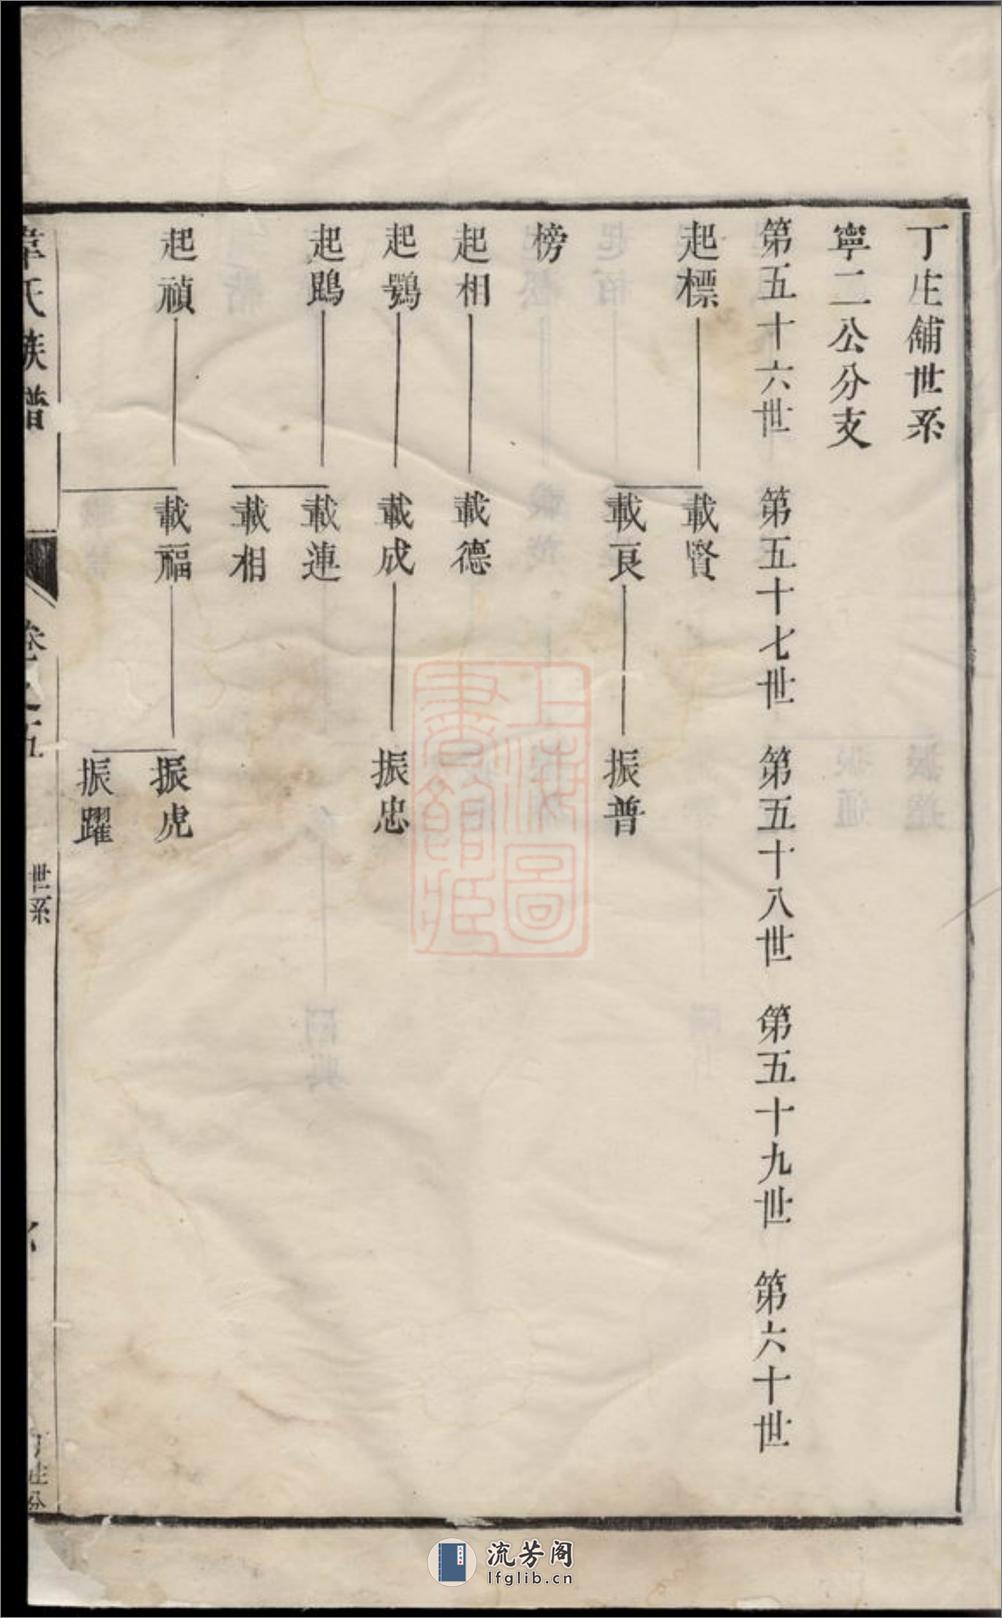 丁庄舖世系
寧二公分支
第五十六世 第五十七世 第五十八世 第五十九世 第六十世
起標 載賢
載良 振普
榜
起相 載德
起鶚 載成 振忠
起鵾 載連
載相
起禎 載福 振虎
振躍
韋氏族譜 卷之五 世系
上海圖書館藏
流芳阁
lfglib.cn